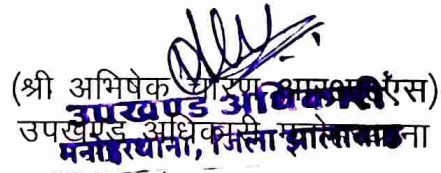 (श्री अभिषेक चारण आरएएस)
उपखण्ड अधिकारी
उपखण्ड अधिकारी मनोहरथाना
मनोहरथाना, जिला झालावाड